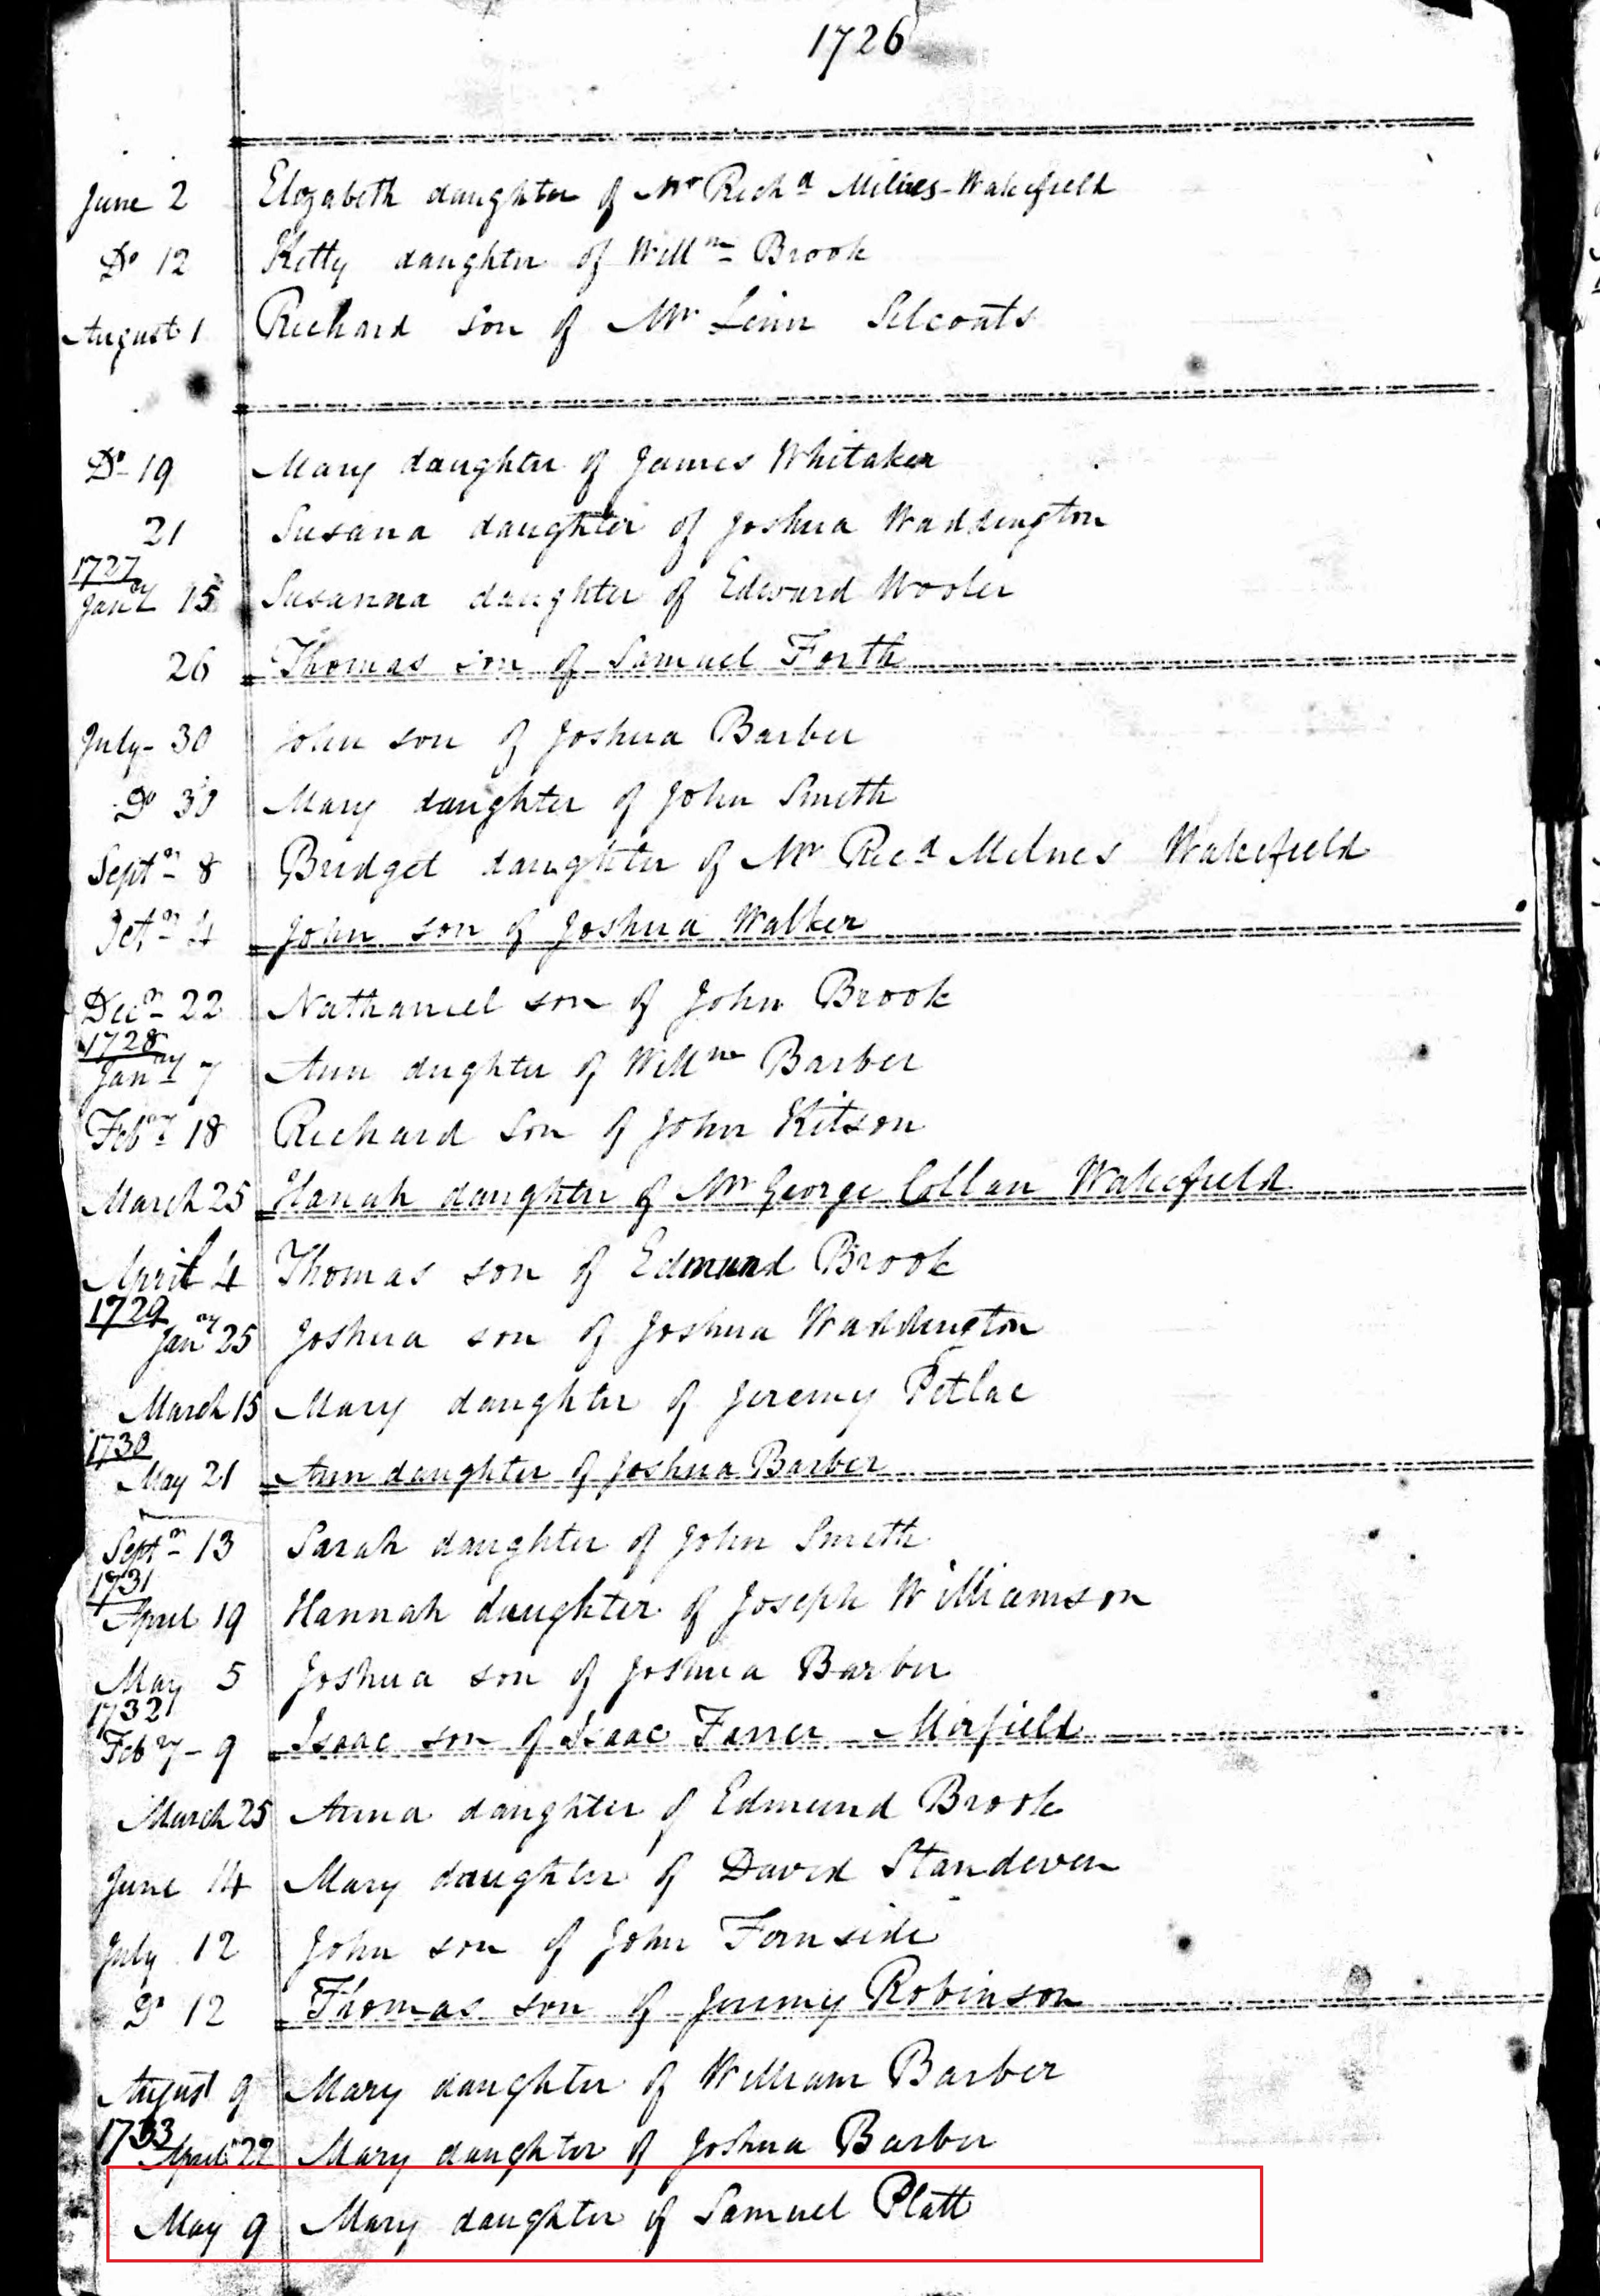 1726
June 2 Elizabeth daughter of Mr Richd Milnes - Wakefield
Do 12 Ketty daughter of Willm Brook
August 1 Richard son of Mr Linn Silcoats
Do 19 Mary daughter of James Whitaker
21 Susana daughter of Joshua Waddington
1727
Jany 15 Susanna daughter of Edward Wooler
26 Thomas son of Samuel Forth
July - 30 John son of Joshua Barber
Do 30 Mary daughter of John Smith
Septr 8 Bridget daughter of Mr Ricd Milnes Wakefield
Octr 4 John son of Joshua Walker
Decr 22 Nathaniel son of John Brook
1728
Jany 7 Ann dughter of Willm Barber
Feby 18 Richard Son of John Kitson
March 25 Hanah daughter of Mr George Collan Wakefield
April 4 Thomas son of Edmund Brook
1729
Jany 25 Joshua son of Joshua Waddington
March 15 Mary daughter of Jeremy Petlae
1730
May 21 Ann daughter of Joshua Barber
Septr 13 Sarah daughter of John Smith
1731
April 19 Hannah daughter of Joseph Williamson
May 5 Joshua son of Joshua Barber
1732
Feby - 9 Isaac son of Isaac Farrer - Mirfield
March 25 Anna daughter of Edmund Brook
June 14 Mary daughter of David Standeven
July 12 John son of John Fornside
Do 12 Thomas son of Jeremy Robinson
August 9 Mary daughter of William Barber
1733
April 22 Mary daughter of Joshua Barber
May 9 Mary daughter of Samuel Platt